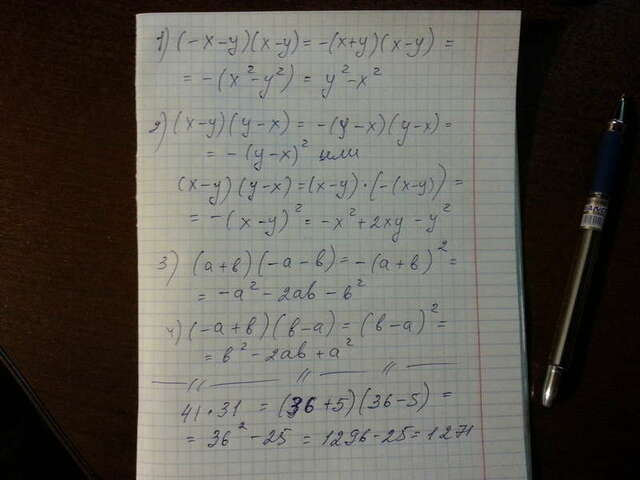 1) (-x-y)(x-y) = -(x+y)(x-y) =
= -(x²-y²) = y²-x²
2) (x-y)(y-x) = -(y-x)(y-x) =
= -(y-x)² или
(x-y)(y-x)=(x-y)·(-(x-y)) =
= -(x-y)² = -x²+2xy-y²
3) (а+в)(-а-в) = -(а+в)² =
= -а²-2ав-в²
4) (-а+в)(в-а) = (в-а)² =
= в²-2ав+а²
— // — // — // —
41·31 = (36+5)(36-5) =
= 36²-25 = 1296-25=1271